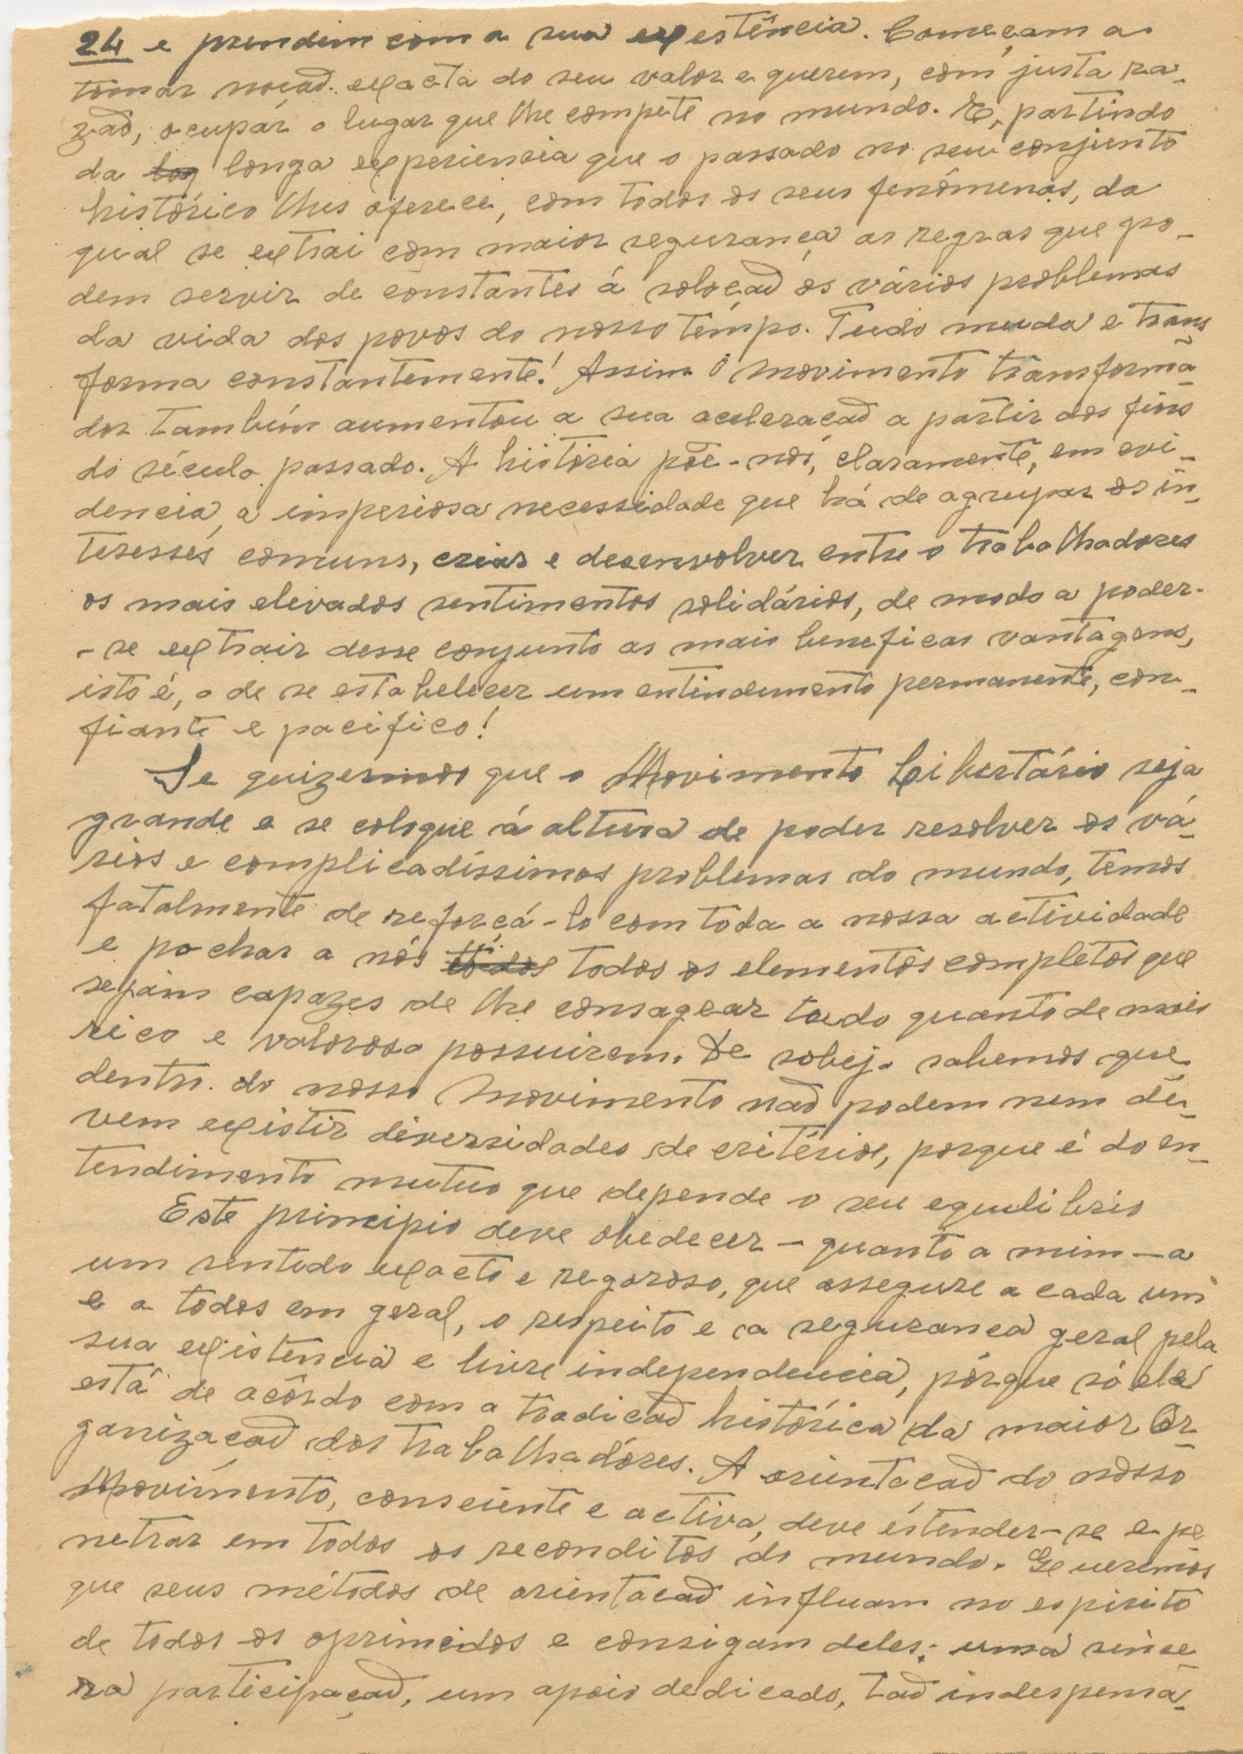 24 e prendem com a sua existência. Começam a
tomar noção exacta do seu valor e querem, com justa ra-
zão, ocupár o lugar que lhe compete no mundo. E, partindo
da longa experiencia que o passado no seu conjunto
histórico lhes oferece, com todos os seus fenómenos, da
qual se extrai com maior segurança as regras que po-
dem servir de constantes á solução os vários problemas
da vida dos povos do nosso tempo. Tudo muda e trans
forma constantemente! Assim o movimento transforma-
dor também aumentou a sua aceleração a partir dos fins
do século passado. A história põe-nos, claramente, em evi-
dencia, a imperiosa necessidade que há de agrupar os in-
teresses comuns, criar e desenvolver entre o trabalhadores
os mais elevados sentimentos solidários, de modo a poder-
-se extrair desse conjunto as mais beneficas vantagens,
isto é, o de se estabelecer um entendimento permanente, con-
fiante e pacifico!
Se quizermos que o Movimento Libertário seja
grande e se coloque á altura de poder resolver os vá-
rios e complicadissimos problemas do mundo, temos
fatalmente de reforçá-lo com tôda a nossa actividade
e pochar a nós todos os elementos completos que
sejam capazes de lhe consagrar tudo quanto de mais
rico e valoroso possuirem. De sobejo sabemos que
dentro do nosso Movimento não podem nem de-
vem existir diversidades de critérios, porque é do en-
tendimento mutuo que depende o seu equilibrio
Este principio deve obedecer - quanto a mim - a
um sentido exacto e regoroso, que assegure a cada um
e a todos em geral, o respeito e a segurança geral pela
sua existencia e livre independencia, porque só ela
está de acôrdo com a tradição histórica da maior Or-
ganização dos trabalhadores. A orientação do nosso
Movimento, consciente e activa, deve estender-se e pe
netrar em todos os reconditos do mundo. Queremos
que seus métodos de orientação influam no espirito
de todos os oprimidos e consigam deles: uma since-
ra participação, um apoio dedicado, tão indespensa-